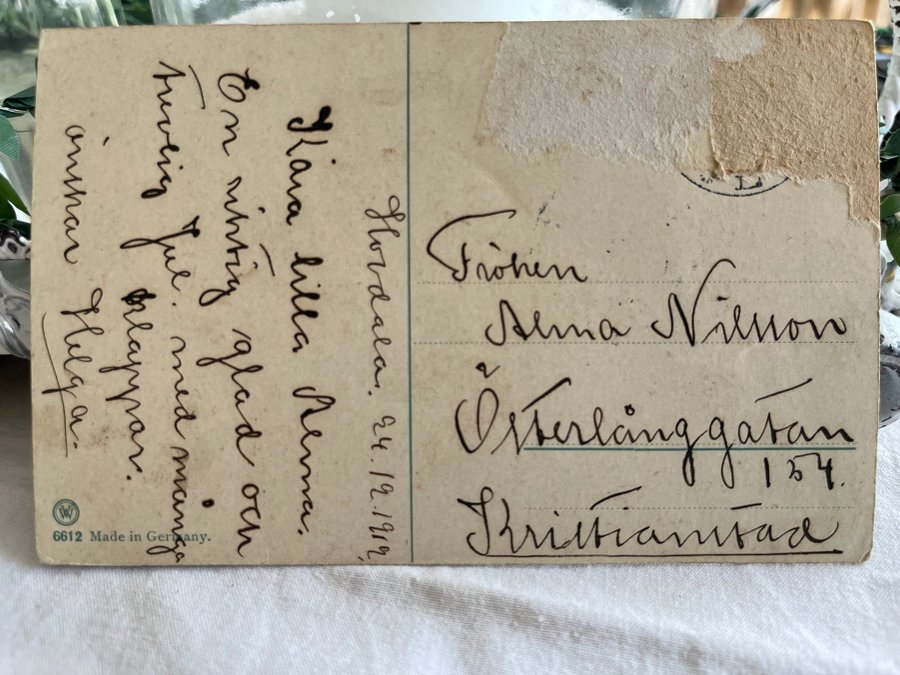 Hovdala. 24.12.1912,
Kära lilla Alma.
En riktig glad och
trevlig Jul. med många
klappar.
önskar Helga.
Fröken
Alma Nilsson
Österlånggatan
154.
Kristianstad
6612 Made in Germany.